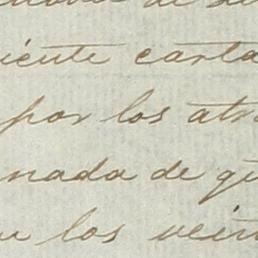 iente carta
por los atr
nada de qu
los vein